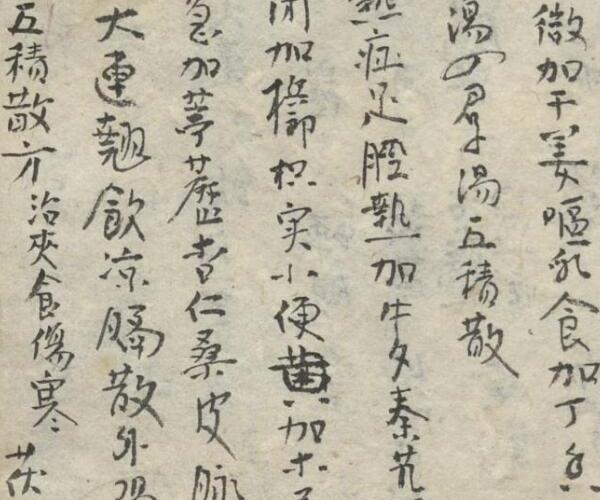 微加干姜嘔乳食加丁香
湯四君子湯五積散
熱症足脛熱加牛夕秦艽
閉加梹榔枳实小便黄加木
急加葶藶杏仁桑皮脉
大連翹飲凉膈散外
五積散方治夾食傷寒 茯